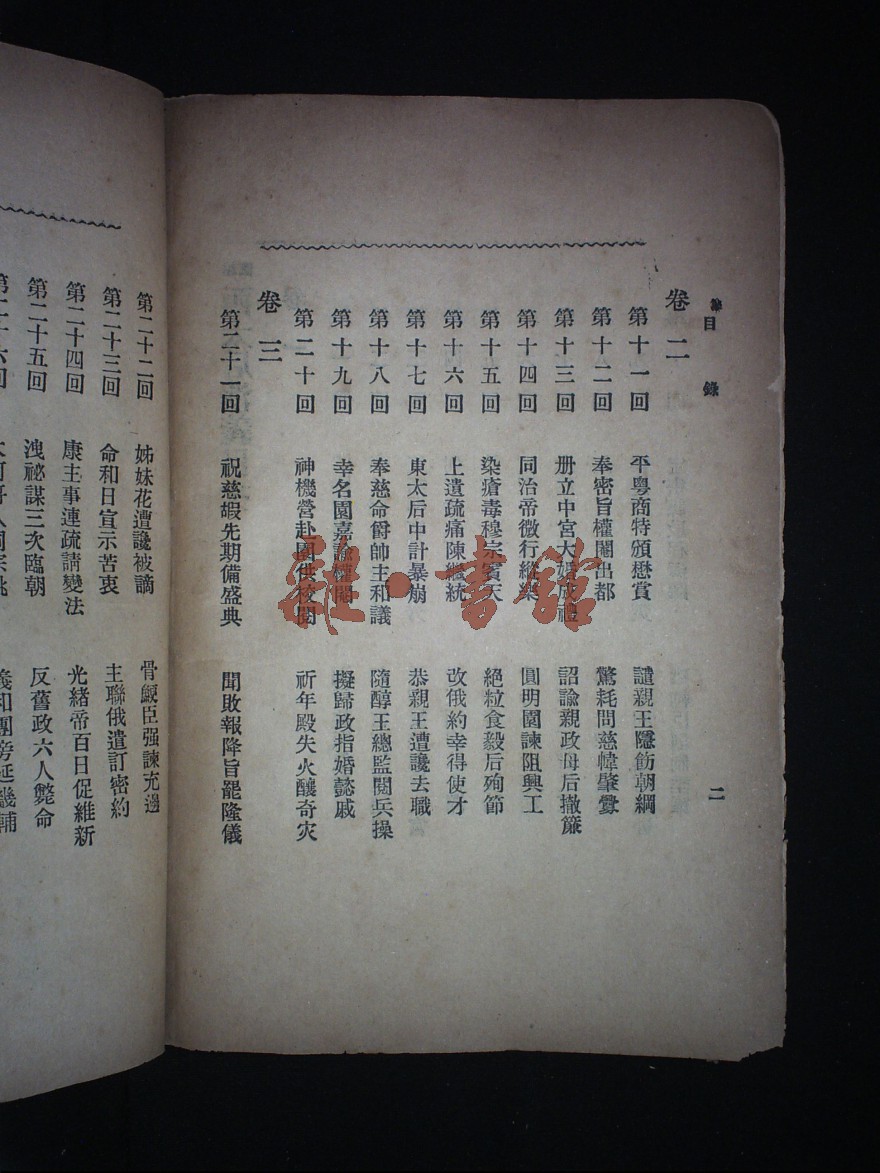 目錄
二
卷二
第十一回 平粵商特頒懋賞 譴親王隱飭朝綱
第十二回 奉密旨權閹出都 驚耗問慈幃肇釁
第十三回 册立中宮大婚成禮 詔諭親政母后撤簾
第十四回 同治帝微行縱樂 圓明園諫阻興工
第十五回 染瘡毒穆宗賓天 絕粒食毅后殉節
第十六回 上遺疏痛陳繼統 改俄約幸得使才
第十七回 東太后中計暴崩 恭親王遭讒去職
第十八回 奉慈命爵帥主和議 隨醇王總監閱兵操
第十九回 幸名園嘉諭權閹 擬歸政指婚懿戚
第二十回 神機營赴園供校閱 祈年殿失火釀奇灾
卷三
第二十一回 祝慈嘏先期備盛典 聞敗報降旨罷隆儀
第二十二回 姊妹花遭讒被謫 骨鯁臣强諫充邊
第二十三回 命和日宣示苦衷 主聯俄遣訂密約
第二十四回 康主事連疏請變法 光緒帝百日促維新
第二十五回 洩祕謀三次臨朝 反舊政六人斃命
第二十六回 義和團旁延畿輔
雅·書館